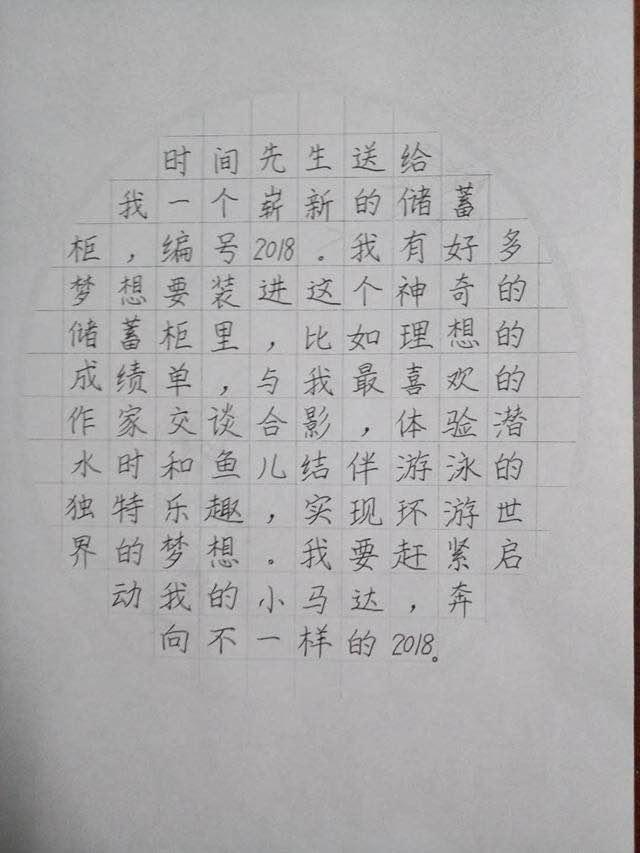 时间先生送给
我一个崭新的储蓄
柜，编号2018。我有好多
梦想要装进这个神奇的
储蓄柜里，比如理想的
成绩单，与我最喜欢的
作家交谈合影，体验潜
水时和鱼儿结伴游泳的
独特乐趣，实现环游世
界的梦想。我要赶紧启
动我的小马达，奔
向不一样的2018。